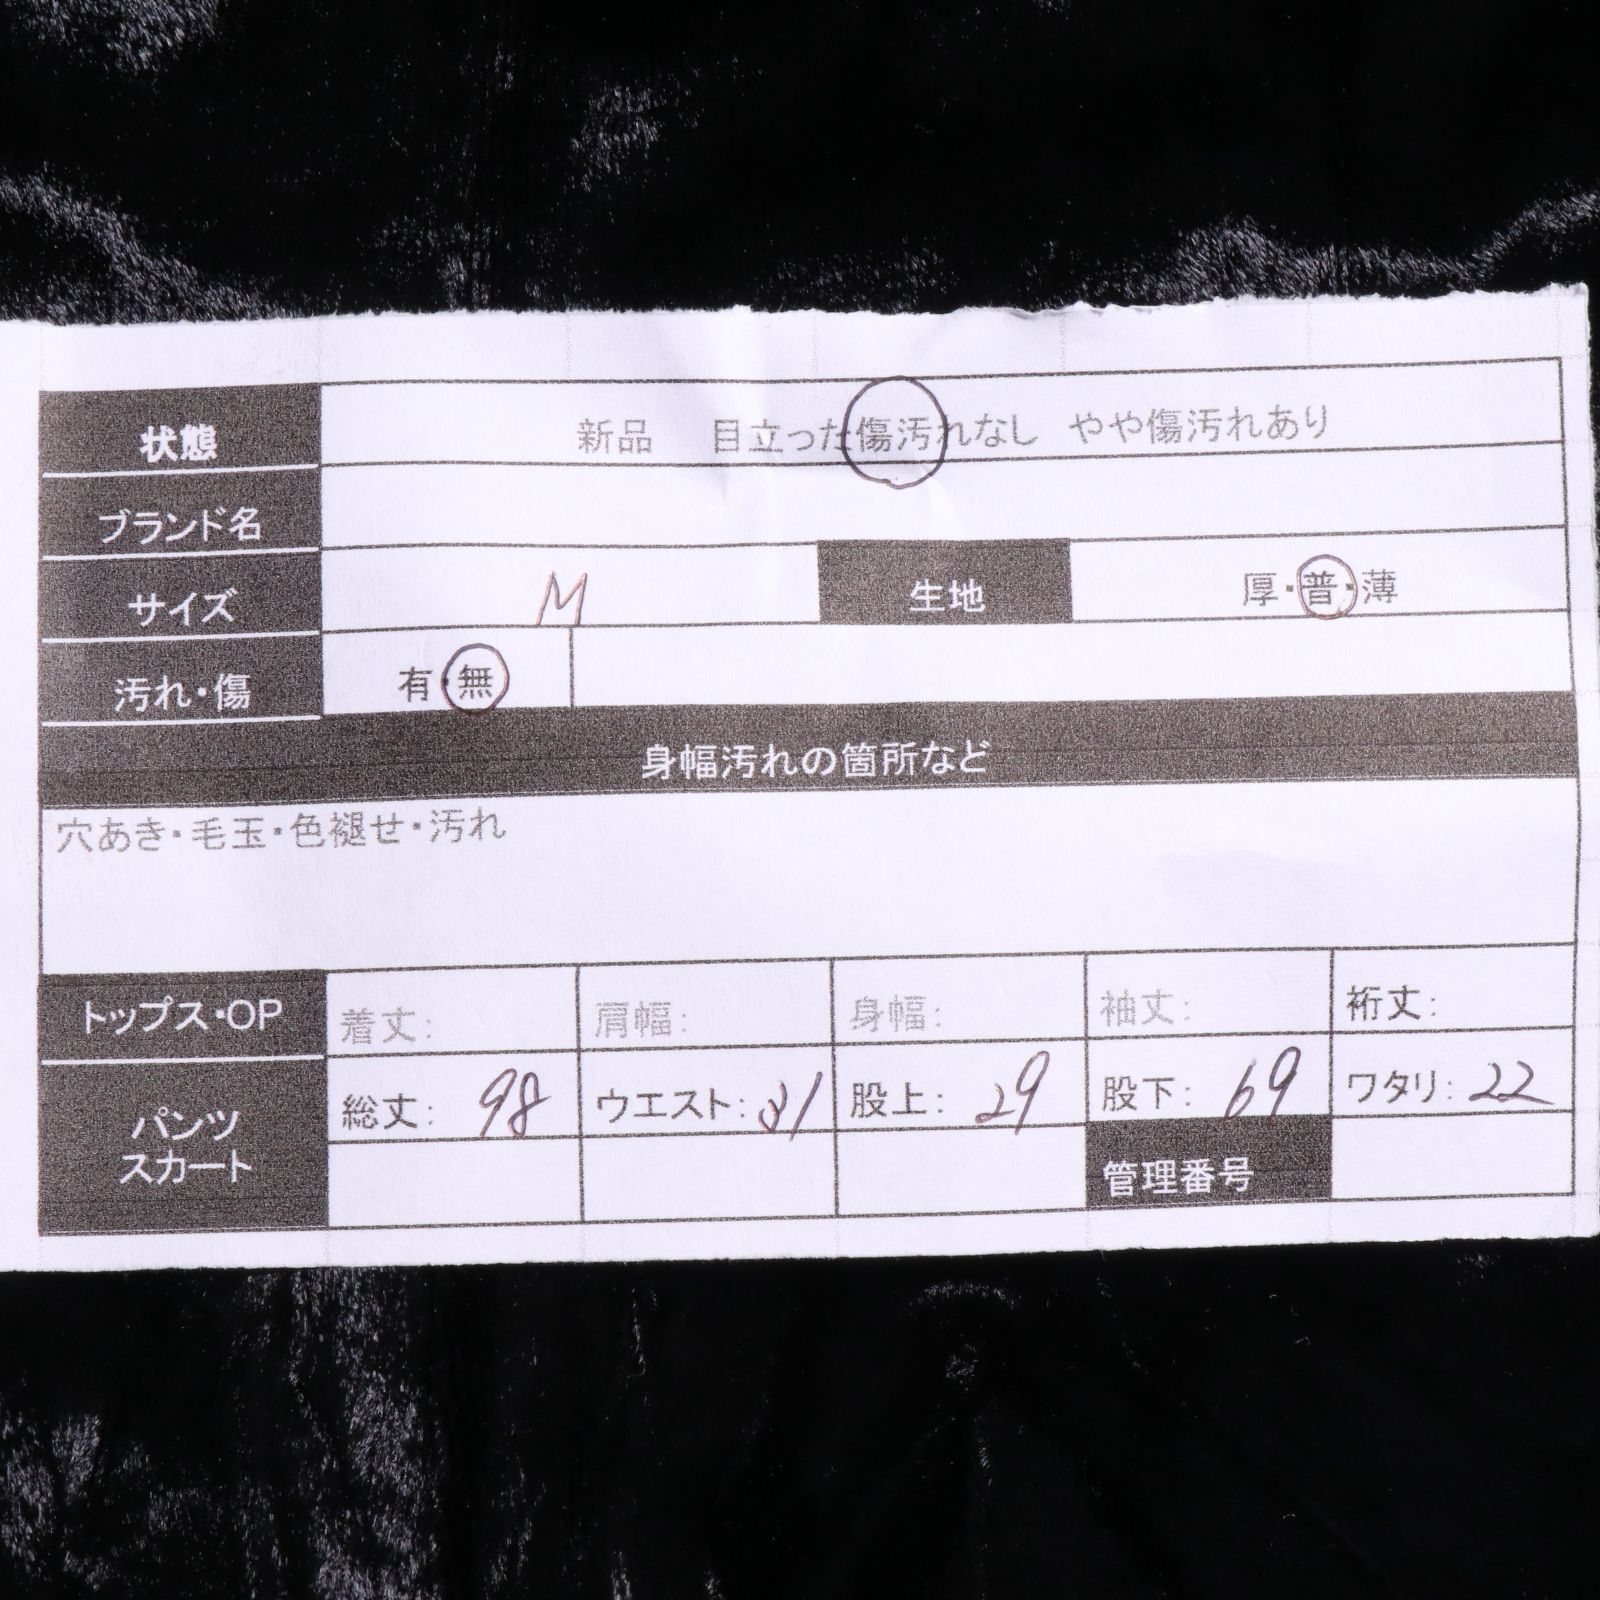 状態 新品 目立った傷汚れなし やや傷汚れあり
ブランド名
サイズ M 生地 厚・普・薄
汚れ・傷 有・無
身幅汚れの箇所など
穴あき・毛玉・色褪せ・汚れ
トップス・OP 着丈: 肩幅: 身幅: 袖丈: 裄丈:
パンツ 総丈: 98 ウエスト: 31 股上: 29 股下: 69 ワタリ: 22
スカート 管理番号